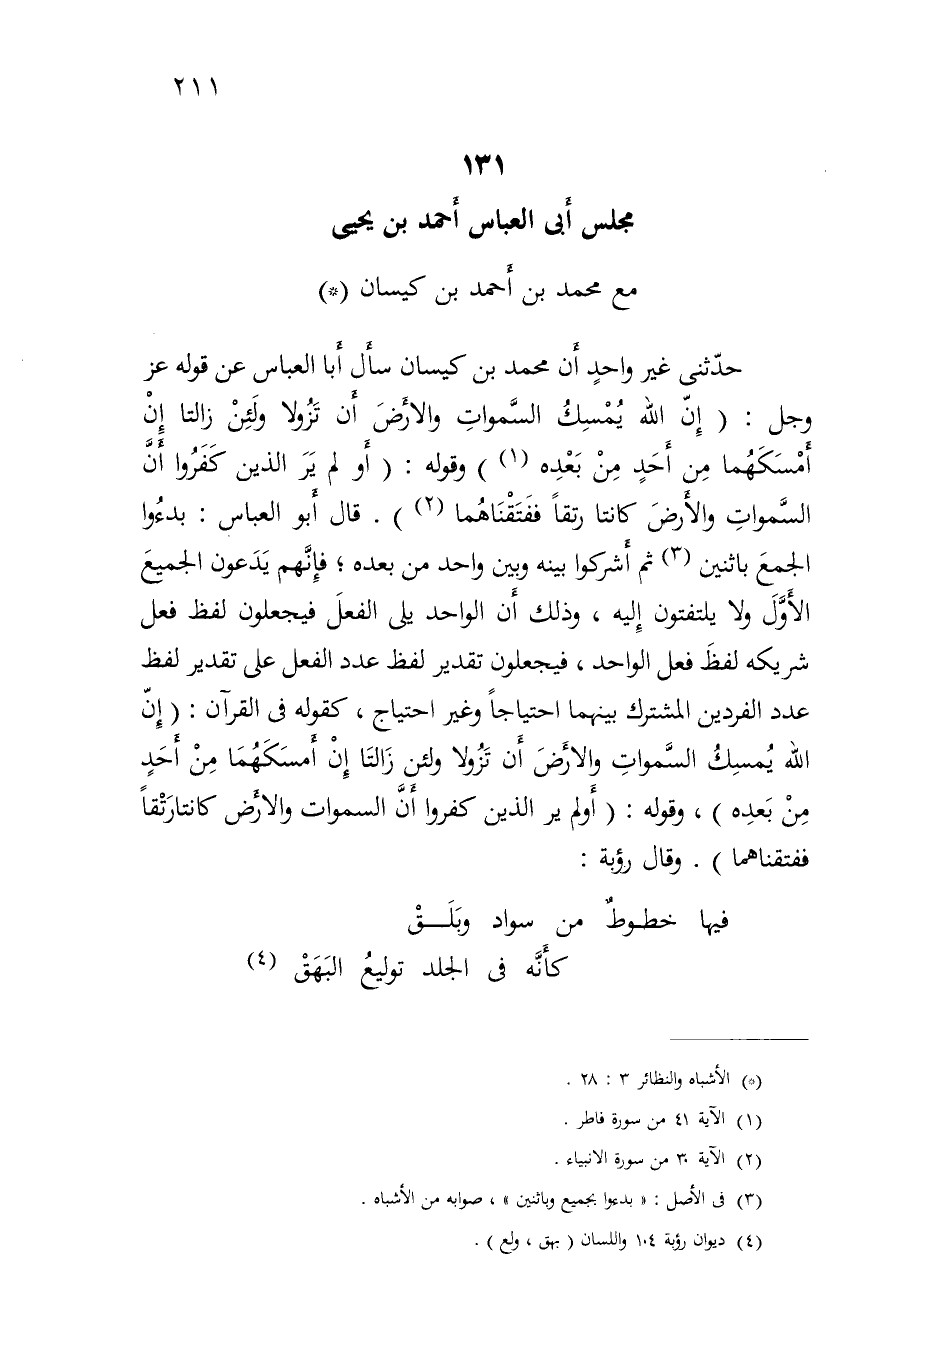 ٢١١
١٣١
مجلس أبى العباس أحمد بن يحيى
مع محمد بن أحمد بن كيسان (*)
حدّثنى غير واحدٍ أن محمد بن كيسان سأل أبا العباس عن قوله عز
وجل : ( إنّ الله يُمْسِكُ السَّمواتِ والأرضَ أن تَزُولا ولَئِنْ زالتا إنْ
أمْسَكَهُما مِن أحَدٍ مِنْ بَعْدِه (١) ) وقوله : ( أو لم يَرَ الذين كَفَرُوا أنَّ
السَّمواتِ والأرضَ كانتا رتقاً ففَتَقْنَاهُما (٢) ) . قال أبو العباس : بدءُوا
الجمعَ باثنين (٣) ثم أشركوا بينه وبين واحد من بعده ؛ فإنَّهم يَدَعون الجميعَ
الأوَّلَ ولا يلتفتون إليه ، وذلك أن الواحد يلى الفعلَ فيجعلون لفظ فعل
شريكه لفظَ فعل الواحد ، فيجعلون تقدير لفظ عدد الفعل على تقدير لفظ
عدد الفردين المشترك بينهما احتياجاً وغير احتياج ، كقوله فى القرآن : ( إنّ
الله يُمسِكُ السَّمواتِ والأرضَ أن تَزُولا ولئن زَالتَا إنْ أمسَكَهُمَا مِنْ أحَدٍ
مِنْ بَعدِه ) ، وقوله : ( أولم ير الذين كفروا أنَّ السموات والأرض كانتارَتْقاً
ففتقناهما ) . وقال رؤبة :
فيها خطوطٌ من سواد وبَلَــقْ
كأنَّه فى الجلد توليعُ البَهَقْ (٤)
(*) الأشباه والنظائر ٣ : ٢٨ .
(١) الآية ٤١ من سورة فاطر .
(٢) الآية ٣٠ من سورة الانبياء .
(٣) فى الأصل : « بدءوا بجميع وباثنين » ، صوابه من الأشباه .
(٤) ديوان رؤبة ١٠٤ واللسان ( بهق ، ولع ) .